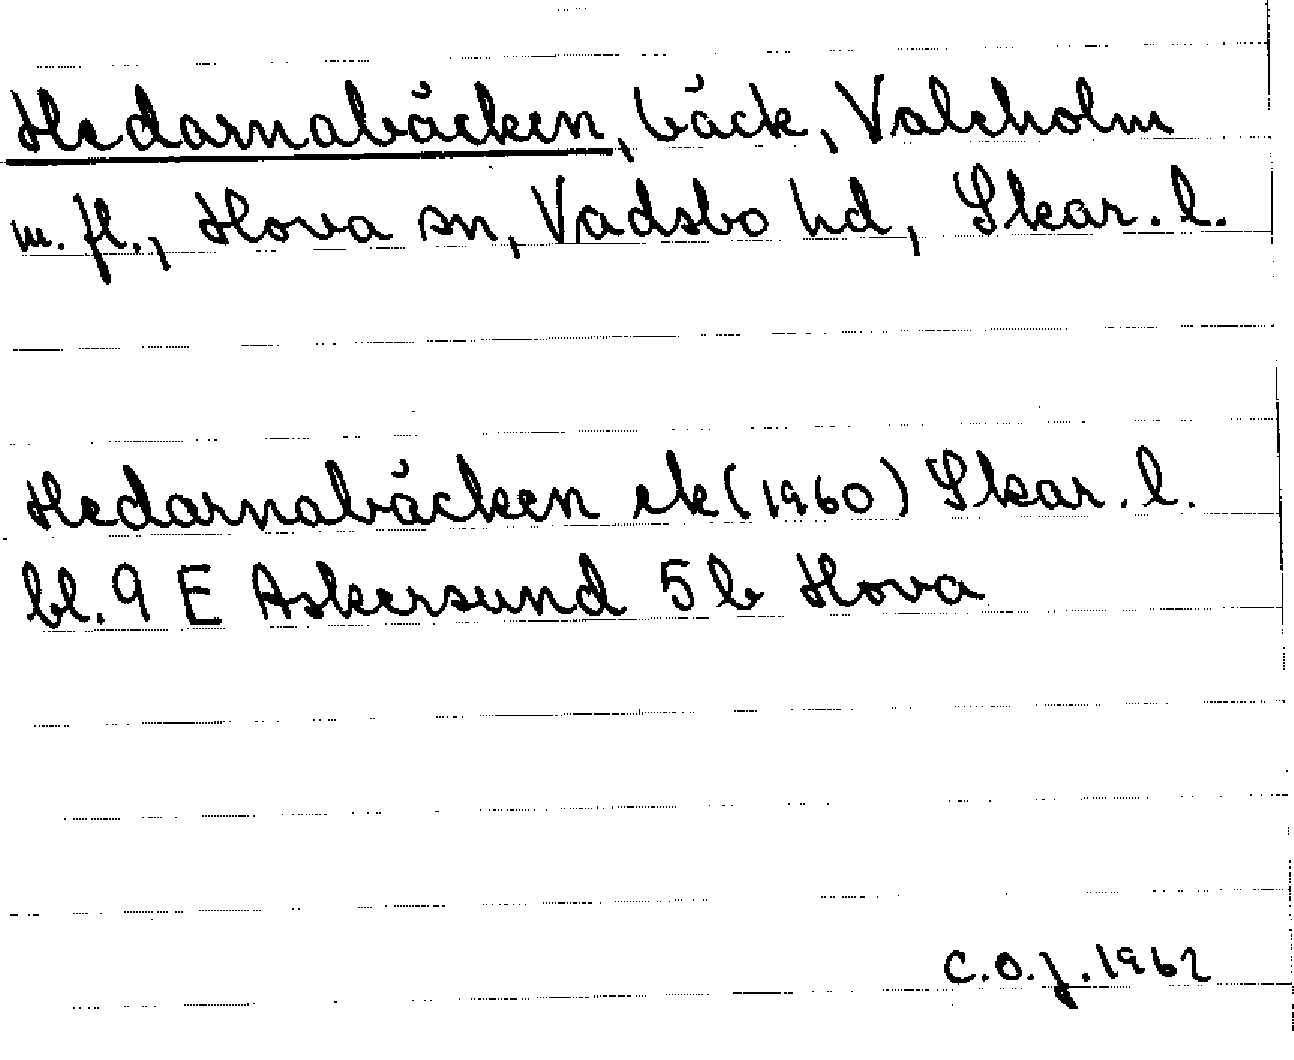 Hedarnabäcken, bäck, Valeholm
m. fl., Hova sn, Vadsbo hd, Skar. l.
Hedarnabäcken ek (1960) Skar. l.
bl. 9 E Askersund 5 b Hova
C.O.J. 1962